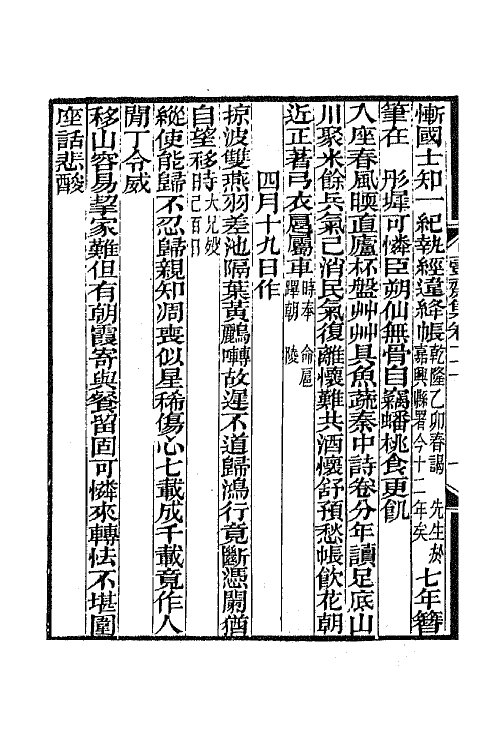 慚國士知一紀執經違絳帳乾隆乙卯春謁 先生於嘉興縣署今十二年矣七年簪
筆在 彤墀可憐臣朔仙無骨自竊蟠桃食更飢
入座春風暖直廬杯盤艸艸具魚蔬秦中詩卷分年讀足底山
川聚米餘兵氣已消民氣復離懷難共酒懷舒預愁帳飲花朝
近正著弓衣扈屬車時奉 命扈蹕朝 陵
四月十九日作
掠波雙燕羽差池隔葉黃鸝囀故遲不道歸鴻行竟斷憑闌猶
自望移時大兄歿
縱使能歸不忍歸親知凋喪似星稀傷心七載成千載竟作人
閒丁令威
移山容易挈家難但有朝霞寄與餐留固可憐來轉怯不堪圍
座話悲酸